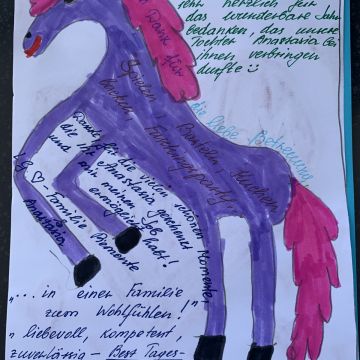 sehr herzlich für
das wunderbare Jahr
bedanken, das unsere
Tochter Anastasia bei
Ihnen verbringen
durfte ☺
Dank für
Spielen, Basteln, Kuchen
backen, Faschingsparty,
die liebe Betreuung
Danke für die vielen schönen Momente,
die ihr Anastasia geschenkt
und mir meinen Job
ermöglicht habt!
LG ♡ - Familie
Anastasia
"... in einer Familie
zum Wohlfühlen!"
"liebevoll, kompetent,
zuverlässig – Best Tages-